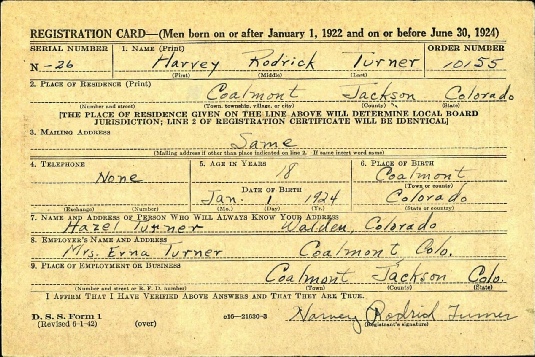 REGISTRATION CARD—(Men born on or after January 1, 1922 and on or before June 30, 1924)
SERIAL NUMBER 1. NAME (Print) ORDER NUMBER
N.-26 Harvey Rodrick Turner 10155
(First) (Middle) (Last)
2. PLACE OF RESIDENCE (Print)
Coalmont Jackson Colorado
(Number and street) (Town, township, village, or city) (County) (State)
[THE PLACE OF RESIDENCE GIVEN ON THE LINE ABOVE WILL DETERMINE LOCAL BOARD
JURISDICTION; LINE 2 OF REGISTRATION CERTIFICATE WILL BE IDENTICAL]
3. MAILING ADDRESS
Same
(Mailing address if other than place indicated on line 2. If same insert word same)
4. TELEPHONE 5. AGE IN YEARS 6. PLACE OF BIRTH
None 18 Coalmont
DATE OF BIRTH (Town or county)
Jan. 1 1924 Colorado
(Exchange) (Number) (Mo.) (Day) (Yr.) (State or country)
7. NAME AND ADDRESS OF PERSON WHO WILL ALWAYS KNOW YOUR ADDRESS
Hazel Turner Walden, Colorado
8. EMPLOYER'S NAME AND ADDRESS
Mrs. Erna Turner Coalmont, Colo.
9. PLACE OF EMPLOYMENT OR BUSINESS
Coalmont Jackson Colo.
(Number and street or R. F. D. number) (Town) (County) (State)
I AFFIRM THAT I HAVE VERIFIED ABOVE ANSWERS AND THAT THEY ARE TRUE.
D. S. S. Form 1 Harvey Rodrick Turner
(Revised 6-1-42) (over) 16—21630-3 (Registrant's signature)